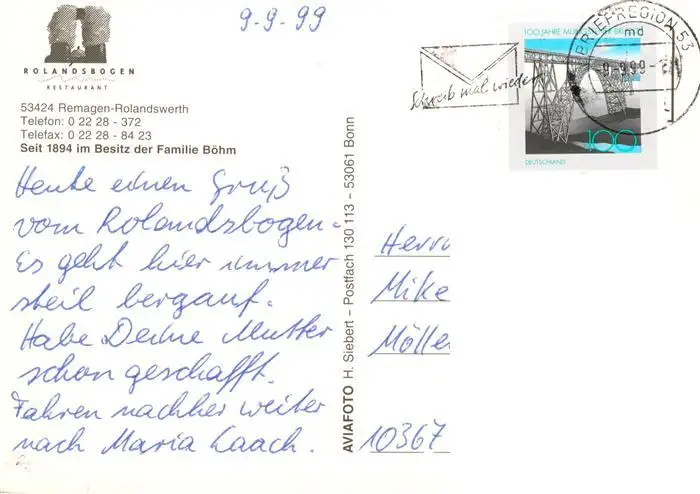 9-9-99
ROLANDSBOGEN
RESTAURANT
53424 Remagen-Rolandswerth
Telefon: 0 22 28 - 372
Telefax: 0 22 28 - 84 23
Seit 1894 im Besitz der Familie Böhm
Heute einen Gruß
vom Rolandsbogen.
Es geht hier immer
steil bergauf.
Habe Deine Mutter
schon geschafft.
Fahren nachher weiter
nach Maria Laach.
AVIAFOTO H. Siebert – Postfach 130 113 - 53061 Bonn
Schreib mal wieder
100 JAHRE
100
DEUTSCHLAND
BRIEFREGION 53
md
-9.9.99-
Herrn
Mike
Mölle
10367